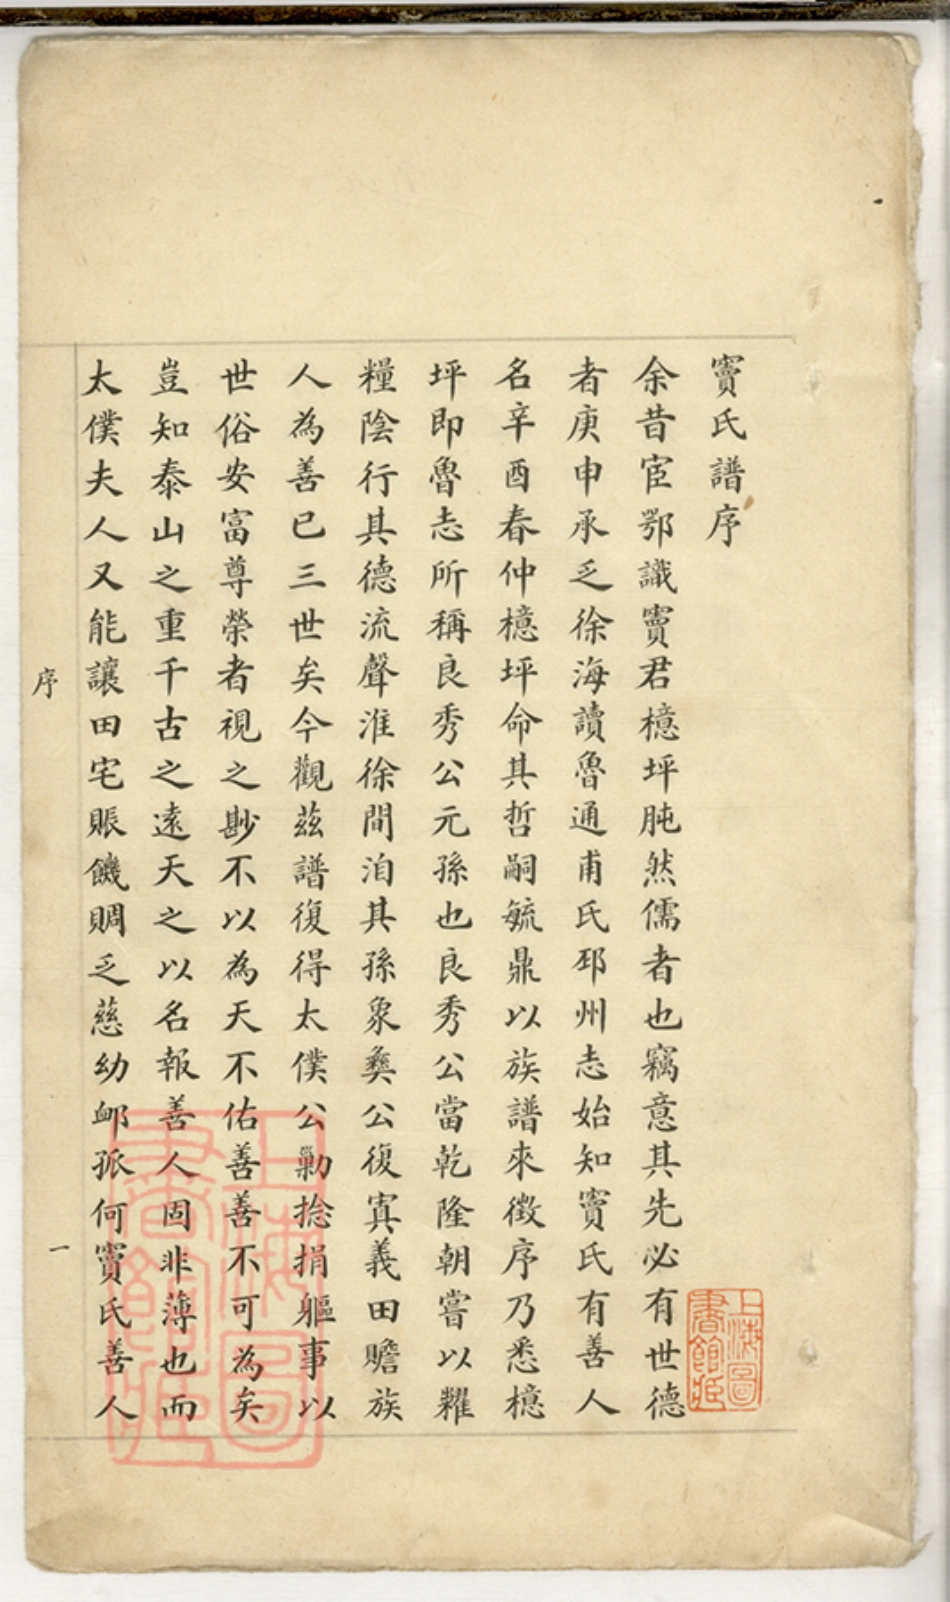 竇氏譜序
余昔宦鄂識竇君檍坪肫然儒者也竊意其先必有世德
者庚申承乏徐海讀魯通甫氏邳州志始知竇氏有善人
名辛酉春仲檍坪命其哲嗣毓鼎以族譜來徵序乃悉檍
坪即魯志所稱良秀公元孫也良秀公當乾隆朝嘗以糶
糧陰行其德流聲淮徐間洎其孫象彝公復寘義田贍族
人為善已三世矣今觀茲譜復得太僕公勦捻捐軀事以
世俗安富尊榮者視之尠不以為天不佑善善不可為矣
豈知泰山之重千古之遠天之以名報善人固非薄也而
太僕夫人又能讓田宅賑饑賙乏慈幼卹孤何竇氏善人
序
一
上海圖書館藏
上海圖書館藏